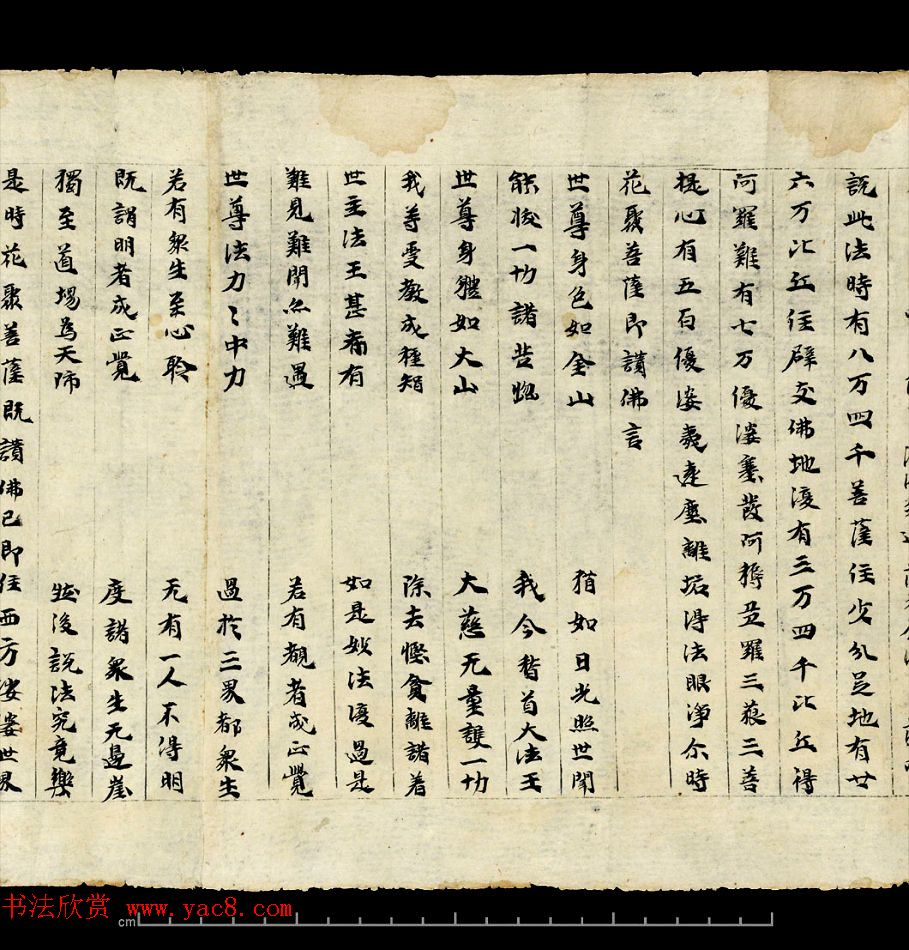 説此法時有八万四千菩薩住少分足地有廿
六万比丘住辟支佛地復有三万四千比丘得
阿羅難有七万優婆塞發阿耨三羅三藐三菩
提心有五百優婆夷遠塵離垢得法眼淨尒時
花聚菩薩即讃佛言
世尊身色如金山 猶如日光照世間
能拔一切諸苦惱 我今稽首大法王
世尊身體如大山 大慈无量護一切
我等受教成種智 除去慳貪離諸著
世主法王甚希有 如是妙法復過是
難見難聞亦難遇 若有覩者成正覺
世尊法力〻中力 過於三界都衆生
若有衆生至心聆 无有一人不得明
既謂明者成正覺 度諸衆生无邊崖
獨至道場為天師 然後説法究竟樂
是時花聚菩薩既讃佛已即住西方娑婆世界
书法欣赏 www.yac8.com
cm